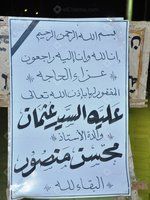 بسم الله الرحمن الرحيم
إنا لله وإنا إليه راجعون
عزاء الحاجه
المغفور لها بإذن الله تعالى
عليه السيد عثمان
والدة الأستاذ
محسن منصور
البقاء لله